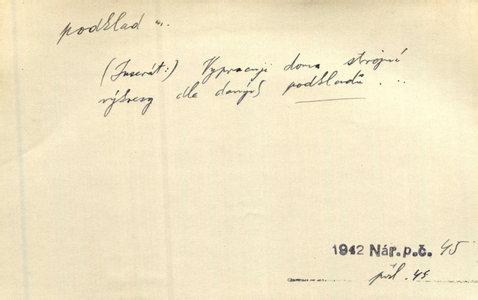 podklad m.
(Inserát:) Vypracuji doma strojní
výkresy dle daných podkladů ...
1942 Nár.p.č. 45
příl. 45